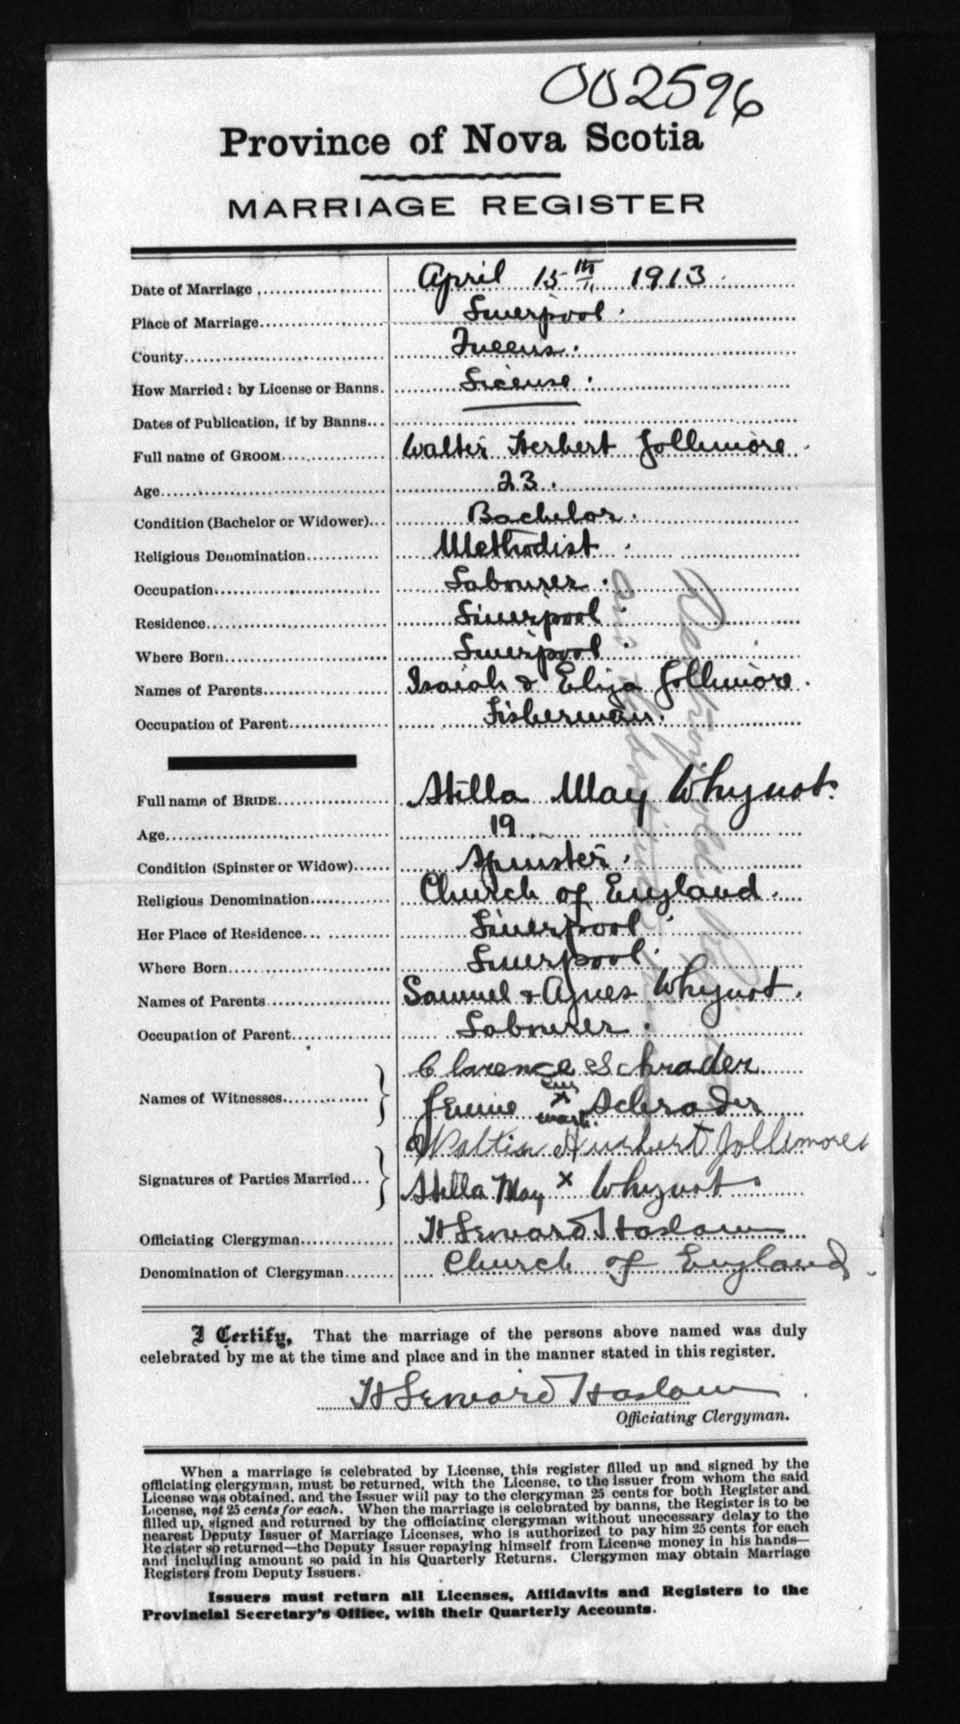 002596
Province of Nova Scotia
MARRIAGE REGISTER
Date of Marriage April 15th, 1913.
Place of Marriage Liverpool.
County Queens.
How Married: by License or Banns. License.
Dates of Publication, if by Banns
Full name of GROOM Walter Herbert Jollimore.
Age 23.
Condition (Bachelor or Widower) Bachelor.
Religious Denomination Methodist.
Occupation Labourer.
Residence Liverpool.
Where Born Liverpool.
Names of Parents Isaiah & Eliza Jollimore.
Occupation of Parent Fisherman.
Full name of BRIDE Stella May Whynot.
Age 19
Condition (Spinster or Widow) Spinster.
Religious Denomination Church of England.
Her Place of Residence Liverpool.
Where Born Liverpool.
Names of Parents Samuel & Agnes Whynot.
Occupation of Parent Labourer.
Names of Witnesses Clarence Schrader
Jennie her x mark Schrader
Signatures of Parties Married Walter Hurbert Jollimore
Stella May x Whynot.
Officiating Clergyman H Seward Haslam
Denomination of Clergyman Church of England.
I Certify, That the marriage of the persons above named was duly
celebrated by me at the time and place and in the manner stated in this register.
H Seward Haslam
Officiating Clergyman.
When a marriage is celebrated by License, this register filled up and signed by the
officiating clergyman, must be returned, with the License, to the issuer from whom the said
License was obtained, and the Issuer will pay to the clergyman 25 cents for both Register and
License, not 25 cents for each. When the marriage is celebrated by banns, the Register is to be
filled up, signed and returned by the officiating clergyman without unecessary delay to the
nearest Deputy Issuer of Marriage Licenses, who is authorized to pay him 25 cents for each
Register so returned—the Deputy Issuer repaying himself from License money in his hands—
and including amount so paid in his Quarterly Returns. Clergymen may obtain Marriage
Registers from Deputy Issuers.
Issuers must return all Licenses, Affidavits and Registers to the
Provincial Secretary's Office, with their Quarterly Accounts.